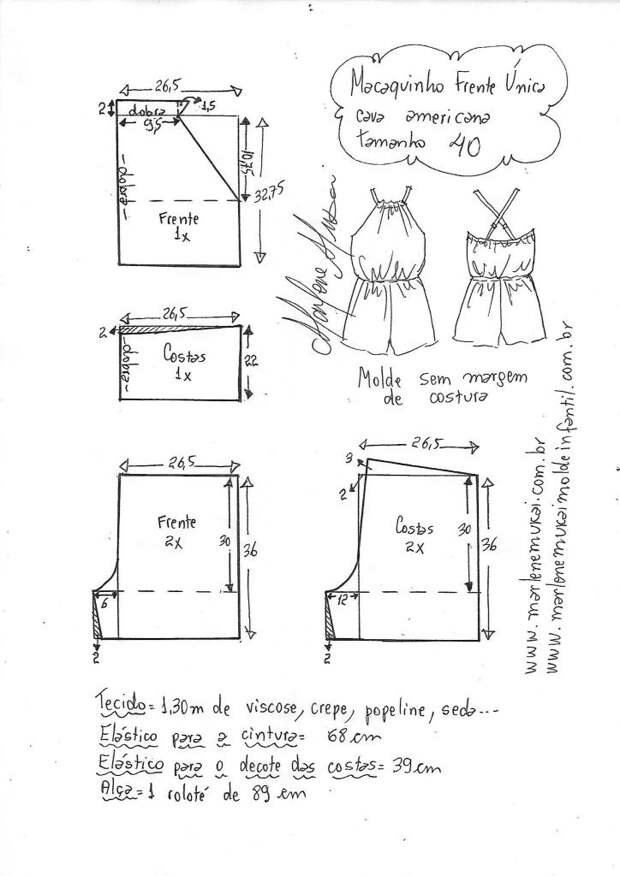 Macaquinho Frente Única
cava americana
tamanho 40
26,5
2
dobra
1,5
9,5
10,75
32,75
-dobra-
Frente
1x
Marlene Mukai
26,5
2
-dobra-
Costas
1x
22
Molde sem margem
de costura
26,5
Frente
2x
30
36
6
2
26,5
3
2
Costas
2x
30
36
12
2
www.marlenemukai.com.br
www.marlenemukaimoldeinfantil.com.br
Tecido = 1,30m de viscose, crepe, popeline, seda...
Elástico para a cintura = 68 cm
Elástico para o decote das costas = 39 cm
Alça = 1 roloté de 89 cm